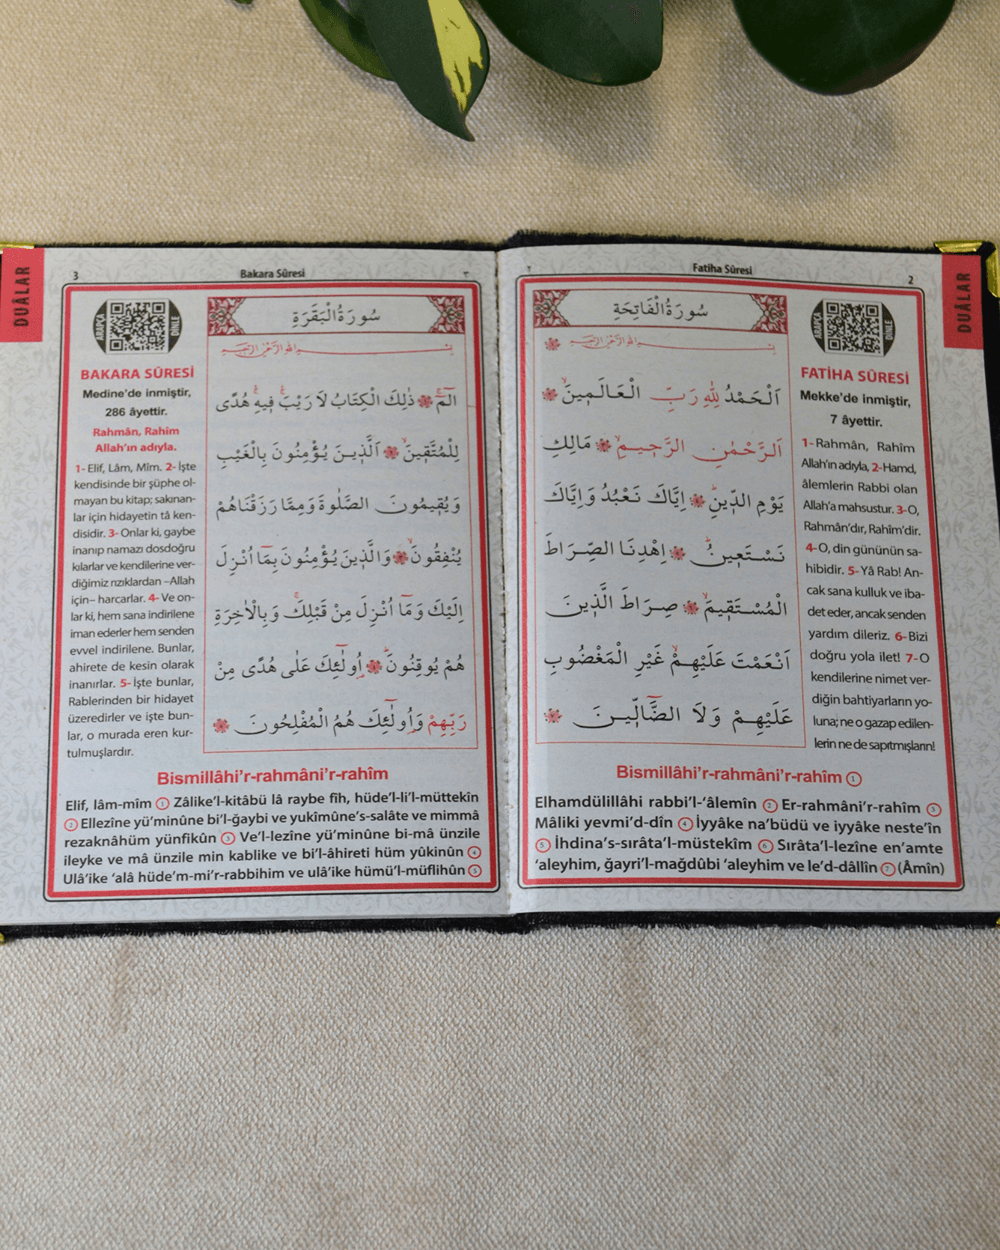 DUÂLAR
٢
Fatiha Sûresi
2
سُورَةُ الْفَاتِحَةِ
بِسْمِ اللهِ الرَّحْمٰنِ الرَّحِيمِ
اَلْحَمْدُ لِلّٰهِ رَبِّ الْعَالَمِينَۙ
اَلرَّحْمٰنِ الرَّحِيمِۙ مَالِكِ
يَوْمِ الدِّينِۜ اِيَّاكَ نَعْبُدُ وَاِيَّاكَ
نَسْتَعِينُۜ اِهْدِنَا الصِّرَاطَ
الْمُسْتَقِيمَۙ صِرَاطَ الَّذِينَ
اَنْعَمْتَ عَلَيْهِمْۙ غَيْرِ الْمَغْضُوبِ
عَلَيْهِمْ وَلَا الضَّٓالِّينَ
ARAPÇA
DİNLE
FATİHA SÛRESİ
Mekke'de inmiştir,
7 âyettir.
1- Rahmân, Rahîm
Allah'ın adıyla, 2- Hamd,
âlemlerin Rabbi olan
Allah'a mahsustur. 3- O,
Rahmân'dır, Rahîm'dir.
4- O, din gününün sa-
hibidir. 5- Yâ Rab! An-
cak sana kulluk ve iba-
det eder, ancak senden
yardım dileriz. 6- Bizi
doğru yola ilet! 7- O
kendilerine nimet ver-
diğin bahtiyarların yo-
luna; ne o gazap edilen-
lerin ne de sapıtmışların!
Bismillâhi'r-rahmâni'r-rahîm 1
Elhamdülillâhi rabbi'l-'âlemîn 2 Er-rahmâni'r-rahîm 3
Mâliki yevmi'd-dîn 4 İyyâke na'büdü ve iyyâke neste'în
5 İhdina's-sırâta'l-müstekîm 6 Sırâta'l-lezîne en'amte
'aleyhim, ğayri'l-mağdûbi 'aleyhim ve le'd-dâllîn 7 (Âmîn)
DUÂLAR
3
Bakara Sûresi
٣
سُورَةُ الْبَقَرَةِ
بِسْمِ اللهِ الرَّحْمٰنِ الرَّحِيمِ
الٓمٓۚ ذٰلِكَ الْكِتَابُ لَا رَيْبَۚ فِيهِۚ هُدًى
لِلْمُتَّقِينَۙ اَلَّذِينَ يُؤْمِنُونَ بِالْغَيْبِ
وَيُقِيمُونَ الصَّلٰوةَ وَمِمَّا رَزَقْنَاهُمْ
يُنْفِقُونَۙ وَالَّذِينَ يُؤْمِنُونَ بِمَٓا اُنْزِلَ
اِلَيْكَ وَمَٓا اُنْزِلَ مِنْ قَبْلِكَۚ وَبِالْاٰخِرَةِ
هُمْ يُوقِنُونَۜ اُولٰٓئِكَ عَلٰى هُدًى مِنْ
رَبِّهِمْ وَاُولٰٓئِكَ هُمُ الْمُفْلِحُونَ
ARAPÇA
DİNLE
BAKARA SÛRESİ
Medine'de inmiştir,
286 âyettir.
Rahmân, Rahîm
Allah'ın adıyla.
1- Elif, Lâm, Mîm. 2- İşte
kendisinde bir şüphe ol-
mayan bu kitap; sakınan-
lar için hidayetin tâ ken-
disidir. 3- Onlar ki, gaybe
inanıp namazı dosdoğru
kılarlar ve kendilerine ver-
diğimiz rızıklardan –Allah
için– harcarlar. 4- Ve on-
lar ki, hem sana indirilene
iman ederler hem senden
evvel indirilene. Bunlar,
ahirete de kesin olarak
inanırlar. 5- İşte bunlar,
Rablerinden bir hidayet
üzeredirler ve işte bun-
lar, o murada eren kur-
tulmuşlardır.
Bismillâhi'r-rahmâni'r-rahîm
Elif, lâm-mîm 1 Zâlike'l-kitâbü lâ raybe fîh, hüde'l-li'l-müttekîn
2 Ellezîne yü'minûne bi'l-ğaybi ve yukîmûne's-salâte ve mimmâ
rezaknâhüm yünfikûn 3 Ve'l-lezîne yü'minûne bi-mâ ünzile
ileyke ve mâ ünzile min kablike ve bi'l-âhireti hüm yûkinûn 4
Ulâ'ike 'alâ hüde'm-mi'r-rabbihim ve ulâ'ike hümü'l-müflihûn 5